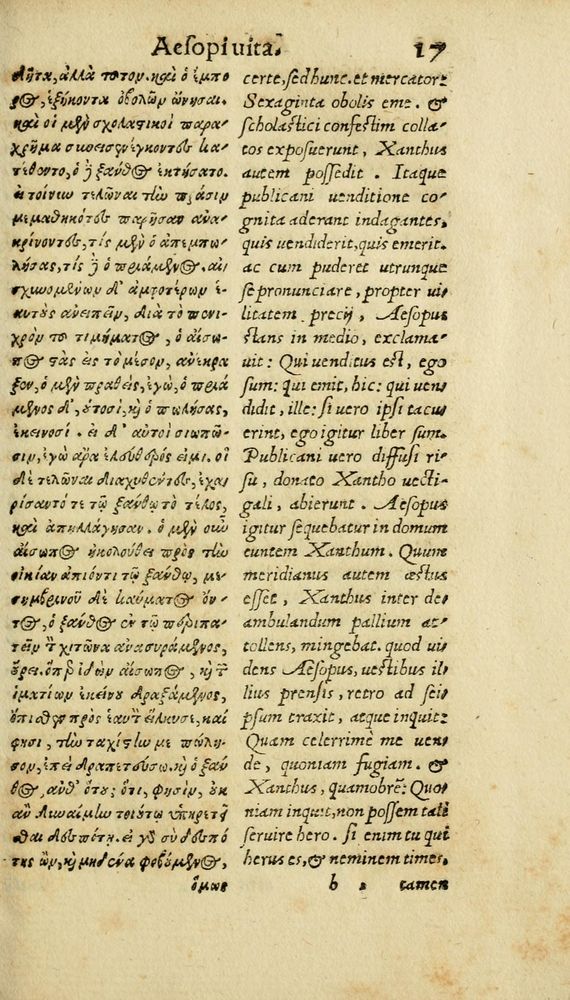 Aesopi uita. 17
λῆτα, ἀλλὰ τοῦτον. καὶ ὁ ἔμπο
ρος, ἑξήκοντα ὀβολῶν ὤνησαι.
καὶ οἱ μὲν σχολαστικοὶ παρα
χρῆμα συνεισενέγκοντες κα
τέθεντο, ὁ δὲ ξάνθος ἐκτήσατο.
οἱ τοίνυν τελῶναι τὴν πρᾶσιν
μεμαθηκότες παρῆσαν ἀνα
κρίνοντες, τίς μὲν ὁ ἀπεμπω
λήσας, τίς δὲ ὁ πριάμενος. αἰ
σχυνομένων δ' ἀμφοτέρων ἑ-
αυτοὺς ἀνειπεῖν, διὰ τὸ πενι
χρὸν τοῦ τιμήματος, ὁ αἴσω-
πος στὰς ἐς τὸ μέσον, ἀνέκρα
ξεν, ὁ μὲν πραθεὶς, ἐγὼ, ὁ πριά
μενος δ', οὑτοσὶ, καὶ ὁ πωλήσας,
ἐκεινοσί. εἰ δ' αὐτοὶ σιωπῶ-
σιν, ἐγὼ ἄρα ἐλεύθερός εἰμι. οἱ
δὲ τελῶναι διαχυθέντες, ἐχα
ρίσαντό τε τῷ ξάνθῳ τὸ τέλος,
καὶ ἀπηλλάγησαν. ὁ μὲν οὖν
αἴσωπος ἠκολούθει πρὸς τὴν
οἰκίαν ἀπιόντι τῷ ξάνθῳ, με
σημβρινοῦ δὲ καύματος ὄν-
τος, ὁ ξάνθος ἐν τῷ περιπα-
τεῖν τὸν χιτῶνα ἀνασυράμενος,
οὔρει. ὅπερ ἰδὼν αἴσωπος, καὶ τῶν
ἱματίων ἐκείνου δραξάμενος,
ὄπισθεν πρὸς ἑαυτὸν εἵλκυσε, καί
φησι, τὴν ταχίστην με πώλη-
σον, ἐπεὶ δραπετεύσω. καὶ ὁ ξάν
θος, ἀνθ' ὅτου; ὅτι, φησὶν, οὐκ
ἂν δυναίμην τοιούτῳ ὑπηρετεῖ
σθαι δεσπότῃ. εἰ γὰρ σὺ δεσπό
της ὢν, καὶ μηδένα φοβούμενος,
ὅμως
certe, sed hunc. et mercator:
Sexaginta obolis eme. &
scholastici confestim colla
tos exposuerunt, Xanthus
autem possedit. Itaque
publicani uenditione co
gnita aderant indagantes,
quis uendiderit, quis emerit.
ac cum puderet utrunque
se pronunciare, propter ui
litatem precij, Aesopus
stans in medio, exclama
uit: Qui uenditus est, ego
sum: qui emit, hic: qui uen
didit, ille: si uero ipsi tacu
erint, ego igitur liber sum.
Publicani uero diffusi ri
su, donato Xantho uecti-
gali, abierunt. Aesopus
igitur sequebatur in domum
euntem Xanthum. Quum
meridianus autem æstus
esset, Xanthus inter de
ambulandum pallium at-
tollens, mingebat. quod ui
dens Aesopus, uestibus il
lius prensis, retro ad sei
psum traxit, atque inquit:
Quam celerrimè me uen
de, quoniam fugiam. &
Xanthus, quamobrē: Quo
niam inquit, non possem tali
seruire hero. si enim tu qui
herus es, & neminem times,
b 2 tamen